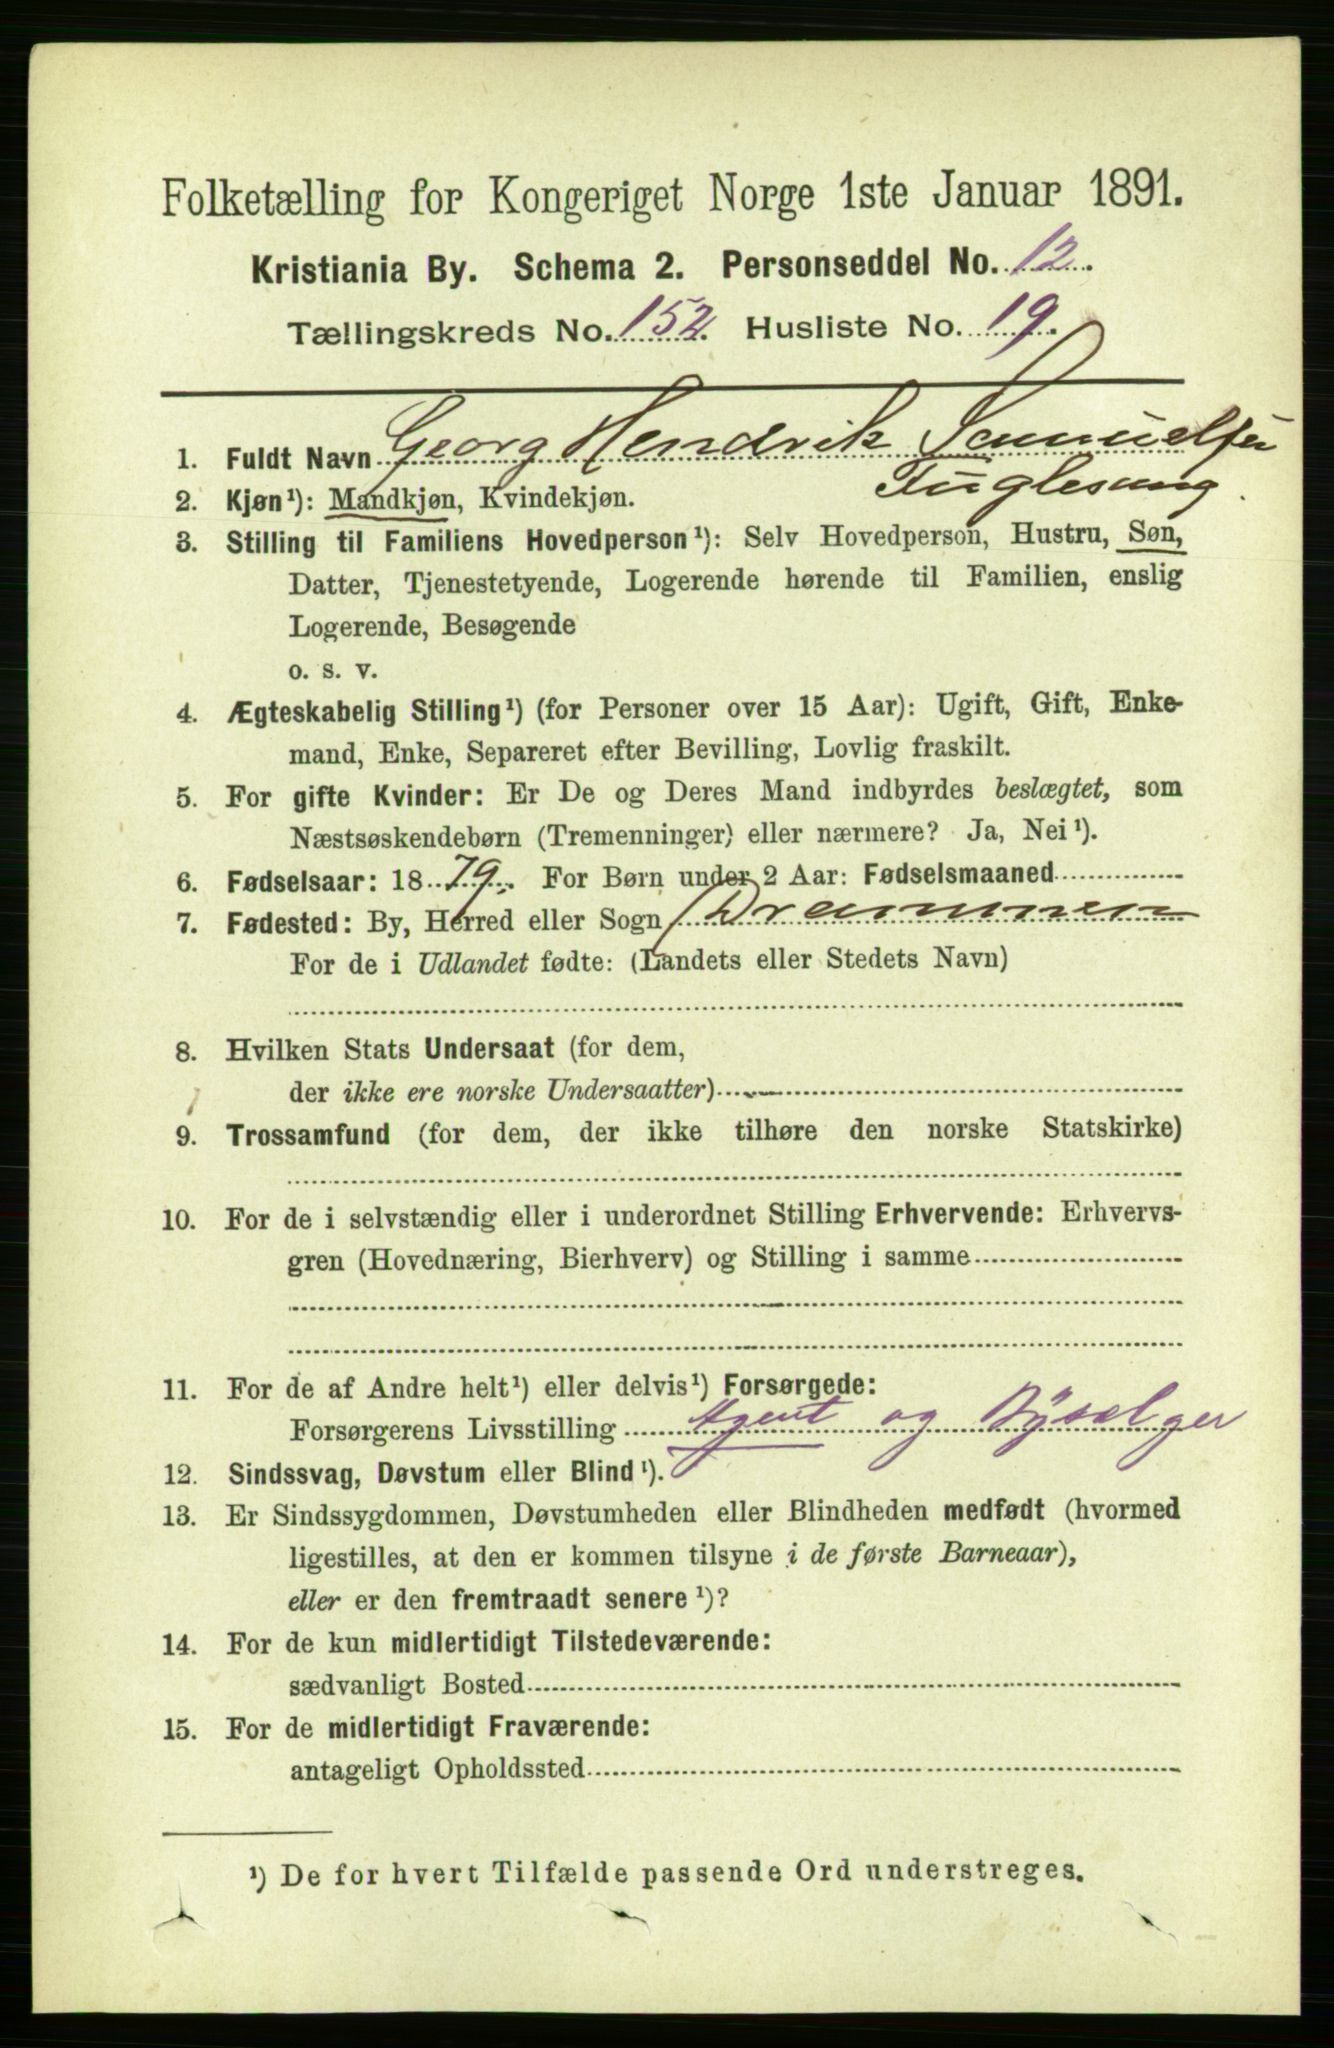 Folketælling for Kongeriget Norge 1ste Januar 1891.
Kristiania By. Schema 2. Personseddel No. 12.
Tællingskreds No. 152. Husliste No. 19.
1. Fuldt Navn Georg Hendrik Samuelsen
Fuglesang
2. Kjøn¹): Mandkjøn, Kvindekjøn.
3. Stilling til Familiens Hovedperson¹): Selv Hovedperson, Hustru, Søn,
Datter, Tjenestetyende, Logerende hørende til Familien, enslig
Logerende, Besøgende
o. s. v.
4. Ægteskabelig Stilling¹) (for Personer over 15 Aar): Ugift, Gift, Enke-
mand, Enke, Separeret efter Bevilling, Lovlig fraskilt.
5. For gifte Kvinder: Er De og Deres Mand indbyrdes beslægtet, som
Næstsøskendebørn (Tremenninger) eller nærmere? Ja, Nei¹).
6. Fødselsaar: 1879. For Børn under 2 Aar: Fødselsmaaned
7. Fødested: By, Herred eller Sogn Drammen
For de i Udlandet fødte: (Landets eller Stedets Navn)
8. Hvilken Stats Undersaat (for dem,
der ikke ere norske Undersaatter)
9. Trossamfund (for dem, der ikke tilhøre den norske Statskirke)
10. For de i selvstændig eller i underordnet Stilling Erhvervende: Erhvervs-
gren (Hovednæring, Bierhverv) og Stilling i samme
11. For de af Andre helt¹) eller delvis¹) Forsørgede:
Forsørgerens Livsstilling Agent og Bysælger
12. Sindssvag, Døvstum eller Blind¹).
13. Er Sindssygdommen, Døvstumheden eller Blindheden medfødt (hvormed
ligestilles, at den er kommen tilsyne i de første Barneaar),
eller er den fremtraadt senere¹)?
14. For de kun midlertidigt Tilstedeværende:
sædvanligt Bosted
15. For de midlertidigt Fraværende:
antageligt Opholdssted
¹) De for hvert Tilfælde passende Ord understreges.